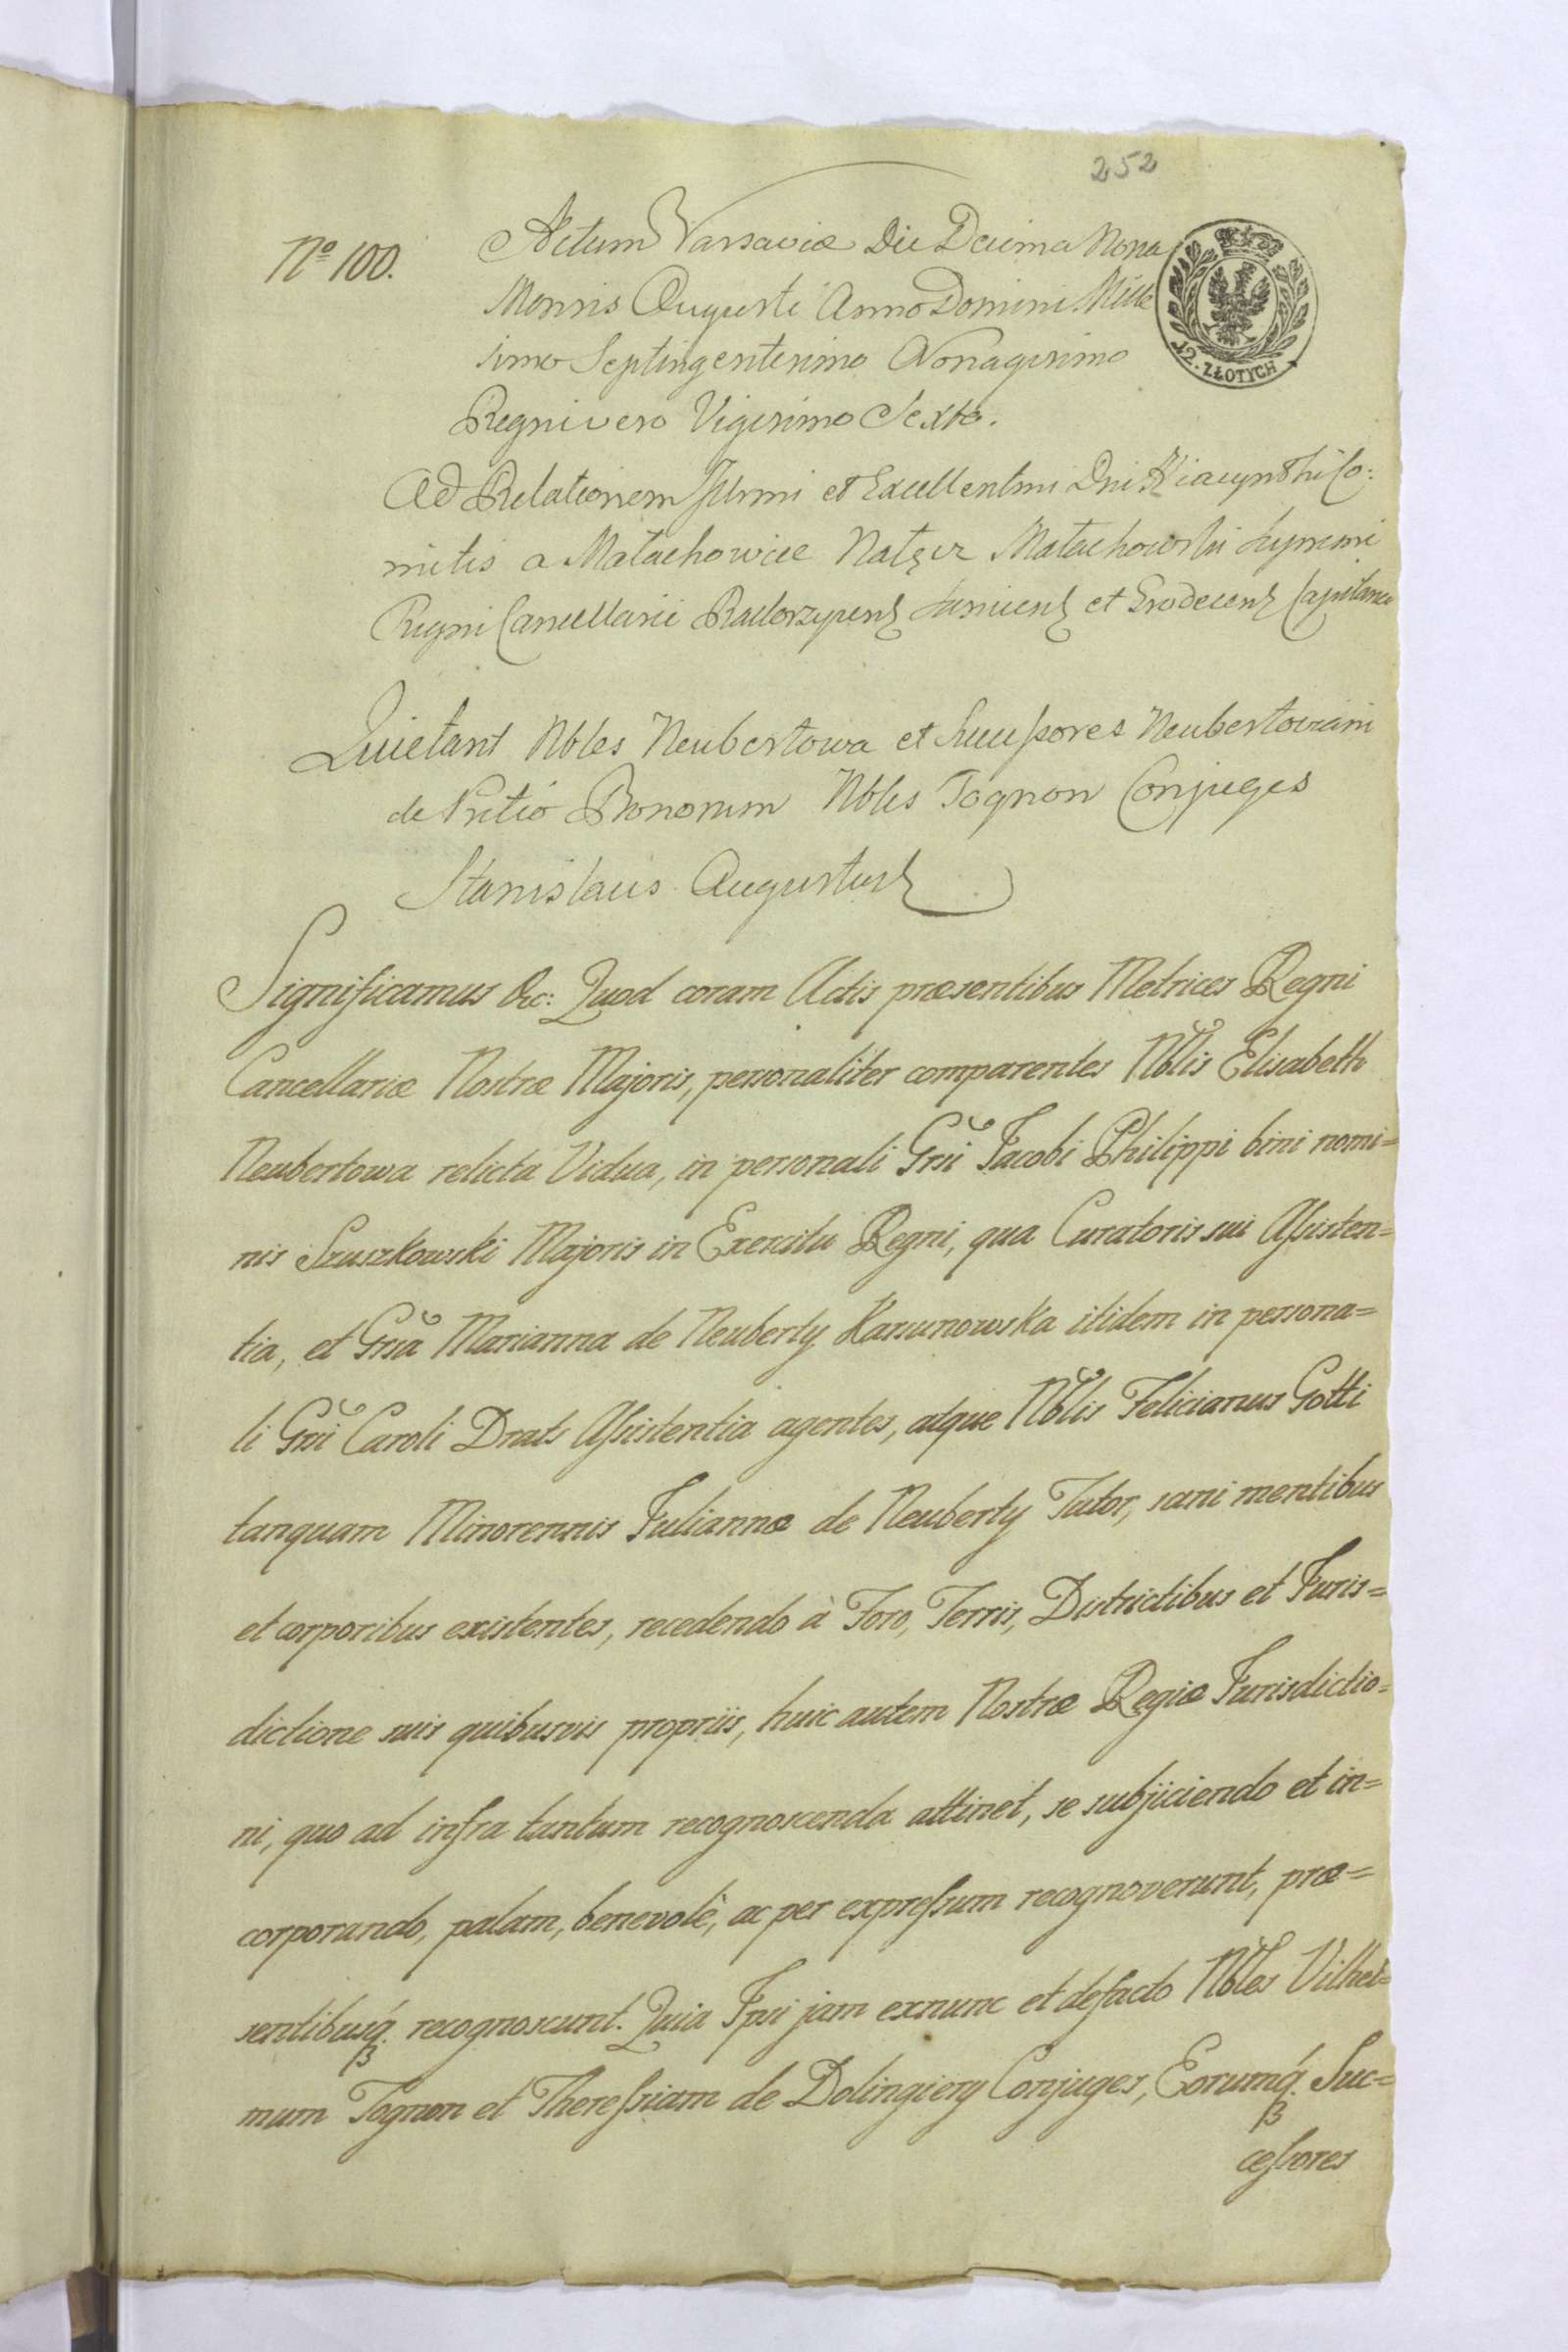 252
Nº 100.
Actum Varsaviæ Die Decima Nona
Mensis Augusti Anno Domini Mille
simo Septingentesimo Nonagesimo
Regni vero Vigesimo Sexto.
12. ZŁOTYCH
Ad Relationem Illmi et Excellentmi Dni Hiacynthi Co:
mitis a Małachowice Nałęcz Małachowski Supremi
Regni Cancellarii et Capitanei
Quietant Nbles Neubertowa et Successores Neubertoviani
de Pretio Bonorum Nbles Tognon Conjuges
Stanislaus Augustus
Significamus &c: Quod coram Actis præsentibus Metrices Regni
Cancellariæ Nostræ Majoris, personaliter comparentes Nblis Elisabeth
Neubertowa relicta Vidua, in personali Grsi Jacobi Philippi bini nomi=
nis Szuszkowski Majoris in Exercitu Regni, qua Curatoris sui Assisten=
tia, et Grsa Marianna de Neuberty Karsunowska itidem in persona=
li Grsi Caroli Drats Assistentia agentes, atque Nblis Felicianus Gotti
tanquam Minorennis Juliannæ de Neuberty Tutor, sani mentibus
et corporibus existentes, recedendo à Foro, Terris, Districtibus et Juris=
dictione suis quibusvis propriis, huic autem Nostræ Regiæ Jurisdictio=
ni, quo ad infra tantum recognoscenda attinet, se subjiciendo et in=
corporando, palam, benevolè, ac per expressum recognoverunt, præ=
sentibusq. recognoscunt. Quia Ipsi jam exnunc et defacto Nbles Vilhel=
mum Tognon et Theressiam de Dolingiery Conjuges, Eorumq. Suc=
cessores